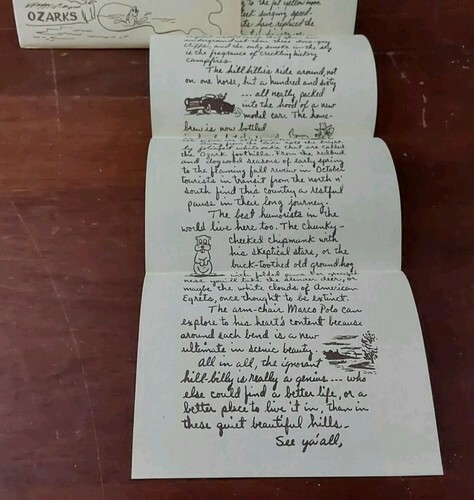 OZARKS
to the fat yellow moon
surging speed.
have replaced the
cliffs, and the only smoke in the sky
is the fragrance of crackling hickory
campfires.
The hillbillie's ride around, not
on one horse, but a hundred and sixty
... all neatly packed
into the hood of a new
model car. The home-
brew is now bottled
the Ozark foothills. From the redbud
and dogwood seasons of early spring
to the flaming fall review in October
tourists in transit from the north n'
south find this country a restful
pause in their long journey.
The best humorists in the
world live here too. The chunky-
cheeked chipmunk with
his skeptical stare, or the
buck-toothed old groundhog
with folded paws
ness you'll like the slender deer, or
maybe the white clouds of American
Egrets, once thought to be extinct.
The arm-chair Marco Polo can
explore to his heart's content because
around each bend is a new
ultimate in scenic beauty.
All in all, the ignorant
hill-billy is really a genius --- who
else could find a better life, or a
better place to live it in, than in
these quiet beautiful hills.
See ya'all,